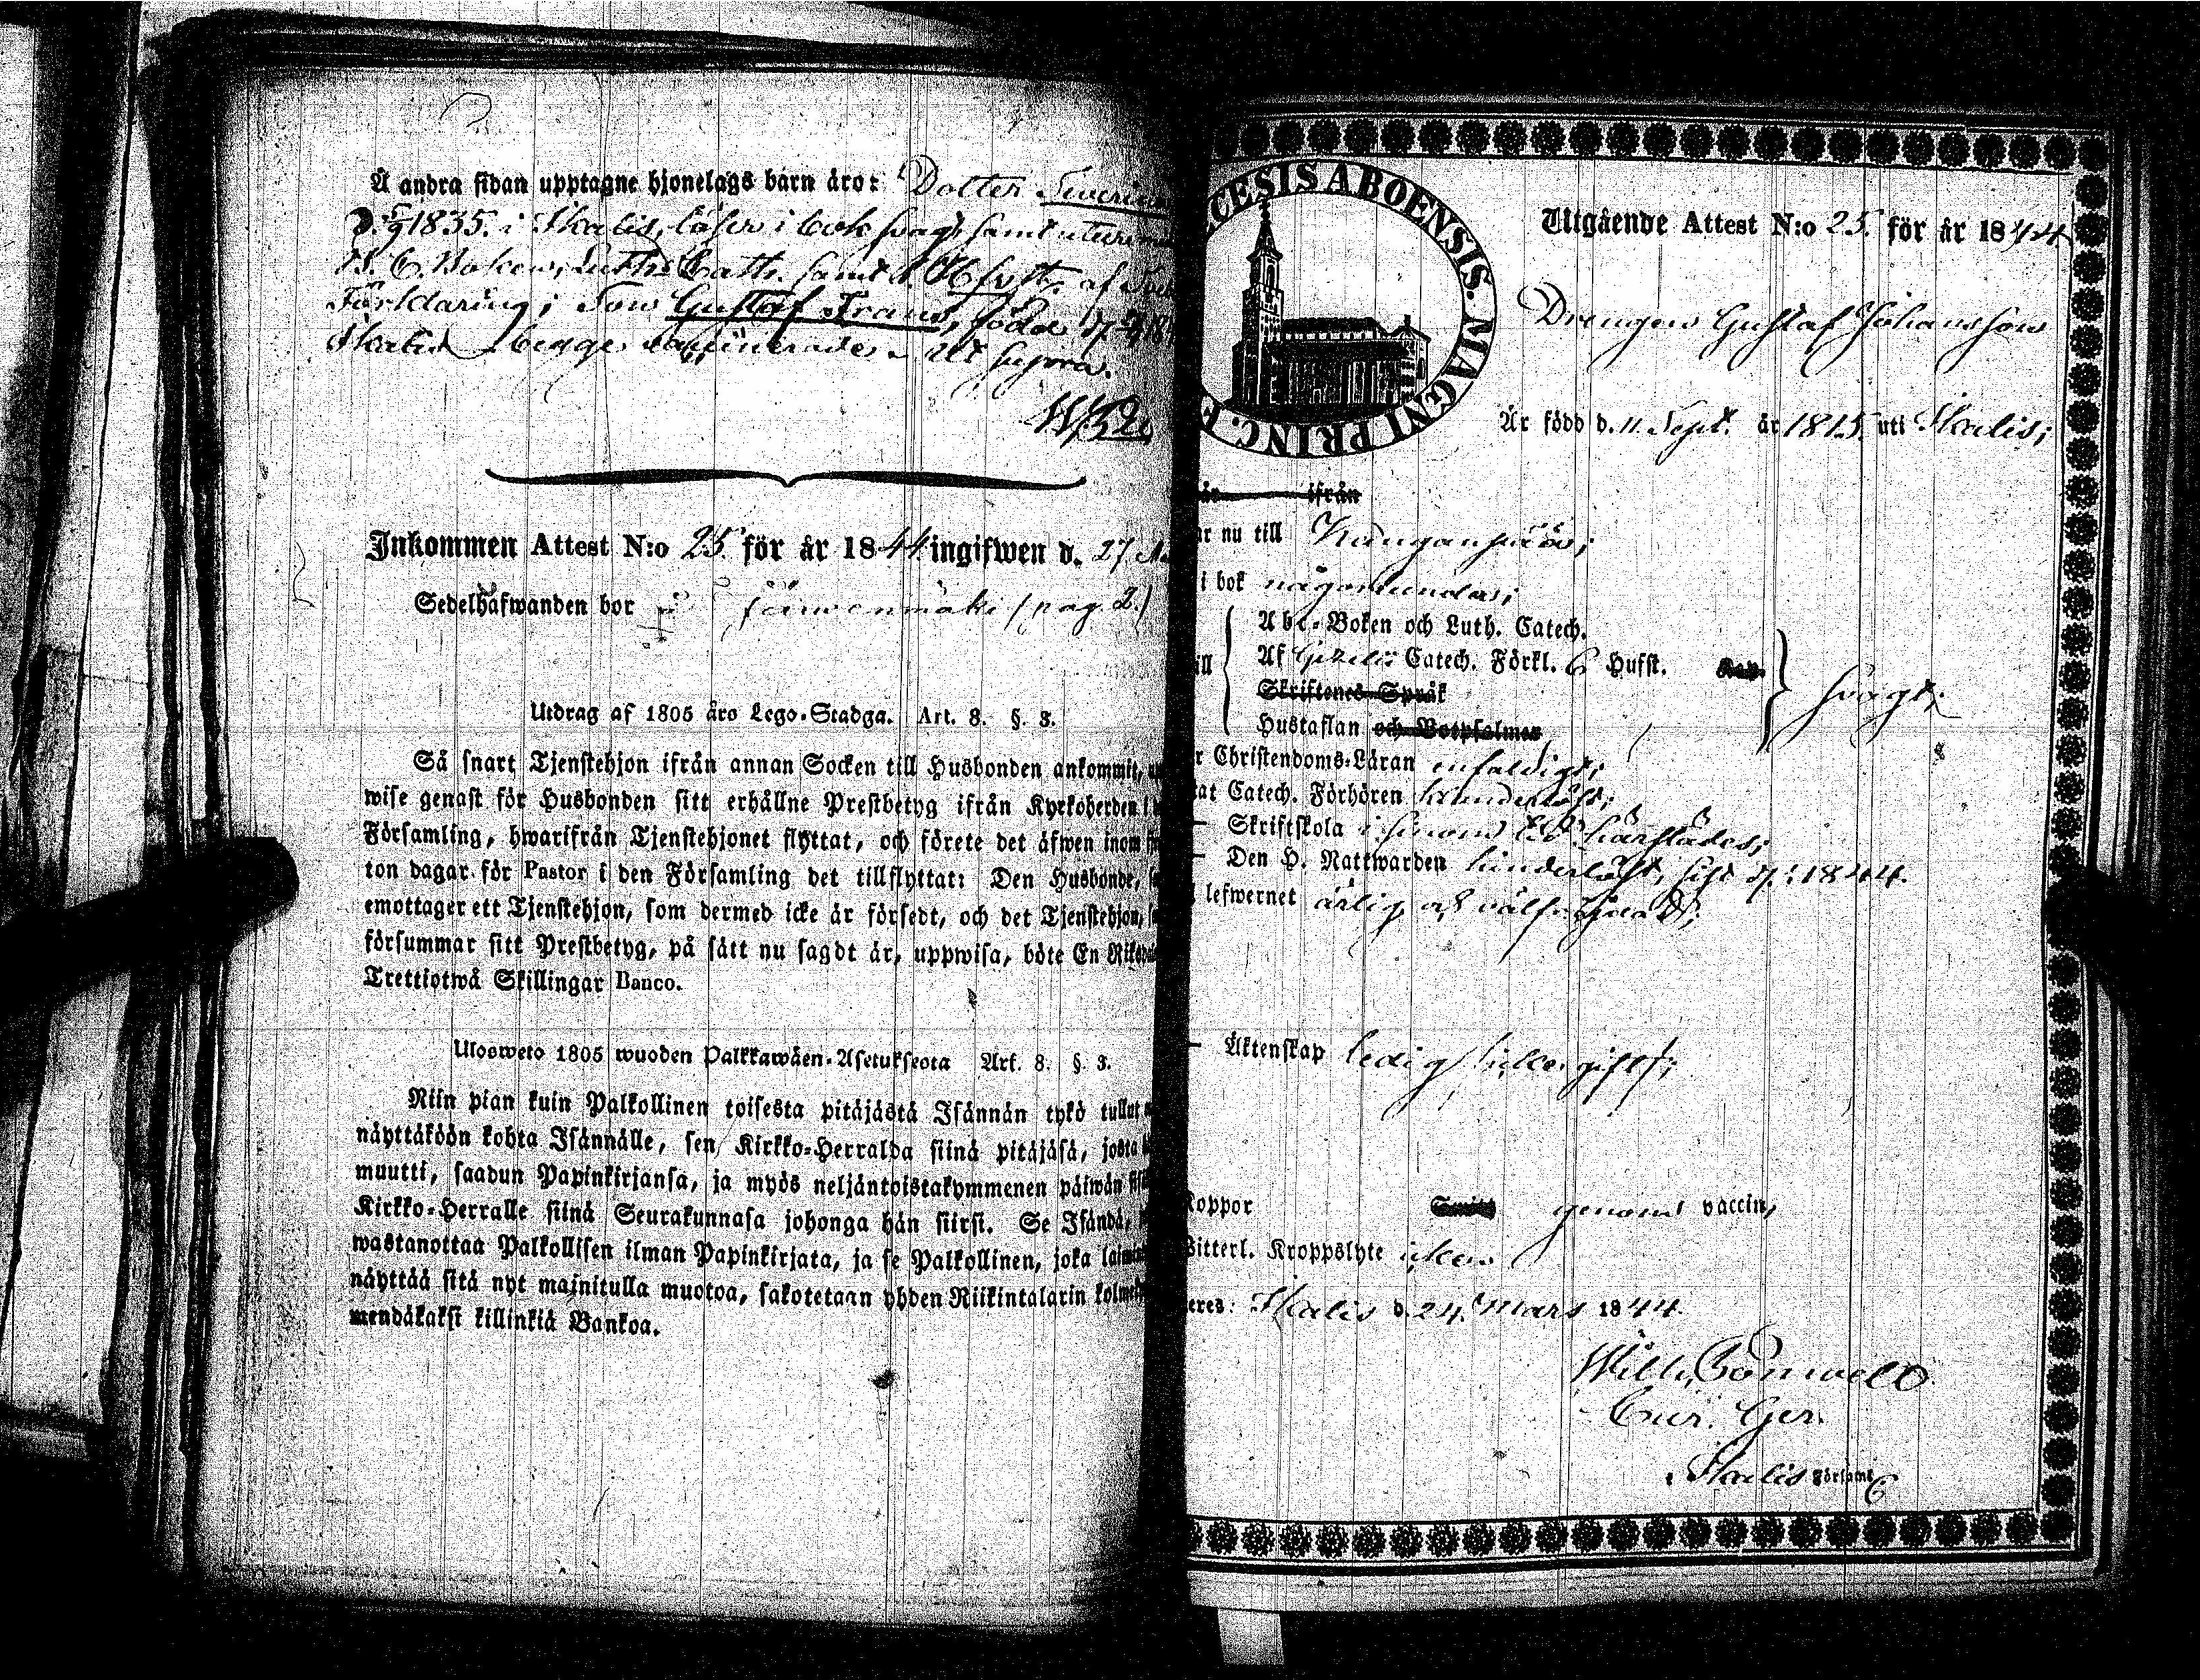 Å andra sidan upptagne hjonelags barn äro: Dotter
1835. i Ikalis, läser i bok svagt samt utur
Luth. Cath. samt
Förklaring; Son Gustaf Frans, född
Ikalis begge vaccinerade. Ut supra.
Inkommen Attest N:o 25 för år 1844 ingifwen d. 27
Sedelhafwanden bor i Järwenmäki (pag. 2.)
Utdrag af 1805 års Lego-Stadga. Art. 8. §. 3.
Så snart Tjenstehjon ifrån annan Socken till Husbonden ankommit,
wise genast för Husbonden sitt erhållne Prestbetyg ifrån Kyrkoherden i
Församling, hwarifrån Tjenstehjonet flyttat, och förete det äfwen inom
ton dagar för Pastor i den Församling det tillflyttat: Den Husbonde,
emottager ett Tjenstehjon, som dermed icke är försedt, och det Tjenstehjon,
försummar sitt Prestbetyg, på sätt nu sagdt är, uppwisa, böte En
Trettiotwå Skillingar Banco.
Ulosweto 1805 wuoden Palkkawäen-Asetuksesta Art. 8. §. 3.
Niin pian kuin Palkollinen toisesta pitäjästä Isännän tykö tullut
näyttäköön kohta Isännälle, sen Kirkko-Herralda siinä pitäjäsä, josta
muutti, saadun Papinkirjansa, ja myös neljäntoistakymmenen päiwän
Kirkko-Herralle siinä Seurakunnasa johonga hän siirsi. Se Isändä,
wastanottaa Palkollisen ilman Papinkirjata, ja se Palkollinen, joka
näyttää sitä nyt mainitulla muotoa, sakotetaan yhden Riikintalarin
mendäkaksi killinkiä Bankoa.
CESIS ABOENSIS. MAGNI PRINC. F
Utgående Attest N:o 25. för år 1844
Drengen Gustaf Johansson
Är född d. 11. Sept. år 1815. uti Ikalis;
år ifrån
ar nu till Kanganpää;
i bok någorlunda;
Abc-Boken och Luth. Catech.
Af Gezelii Catech. Förkl. 6 Hufst.
Skriftenes Språk
Hustaflan och Botpsalmer
svagt;
r Christendoms-Läran enfaldigt;
tat Catech. Förhören hinderlöst;
Skriftskola
Den H. Nattwarden hinderlöst, sist 1844.
lefwernet ärlig och välfrejdad;
Äktenskap ledig till gifte;
Koppor genom vaccin,
Witterl. Kroppslyte icke.
eres: Ikalis d. 24. Mars 1844.
Wilh.
Ikalis Församl